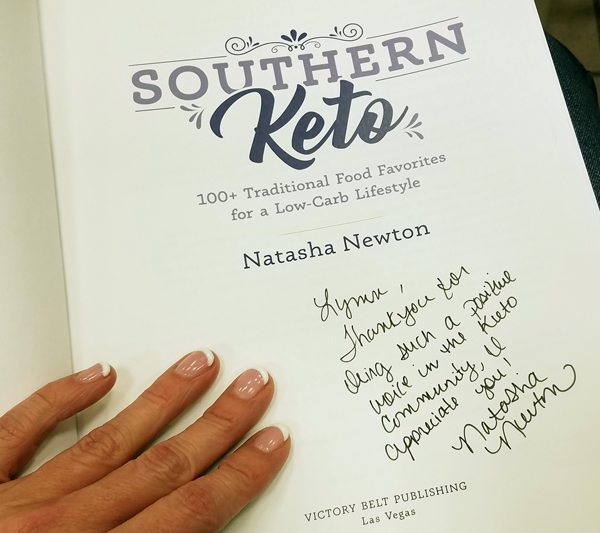 SOUTHERN
Keto
100+ Traditional Food Favorites
for a Low-Carb Lifestyle
Natasha Newton
Lynn,
Thank you for
being such a positive
voice in the Keto
Community, I
appreciate you!
Natasha
Newton
VICTORY BELT PUBLISHING
Las Vegas